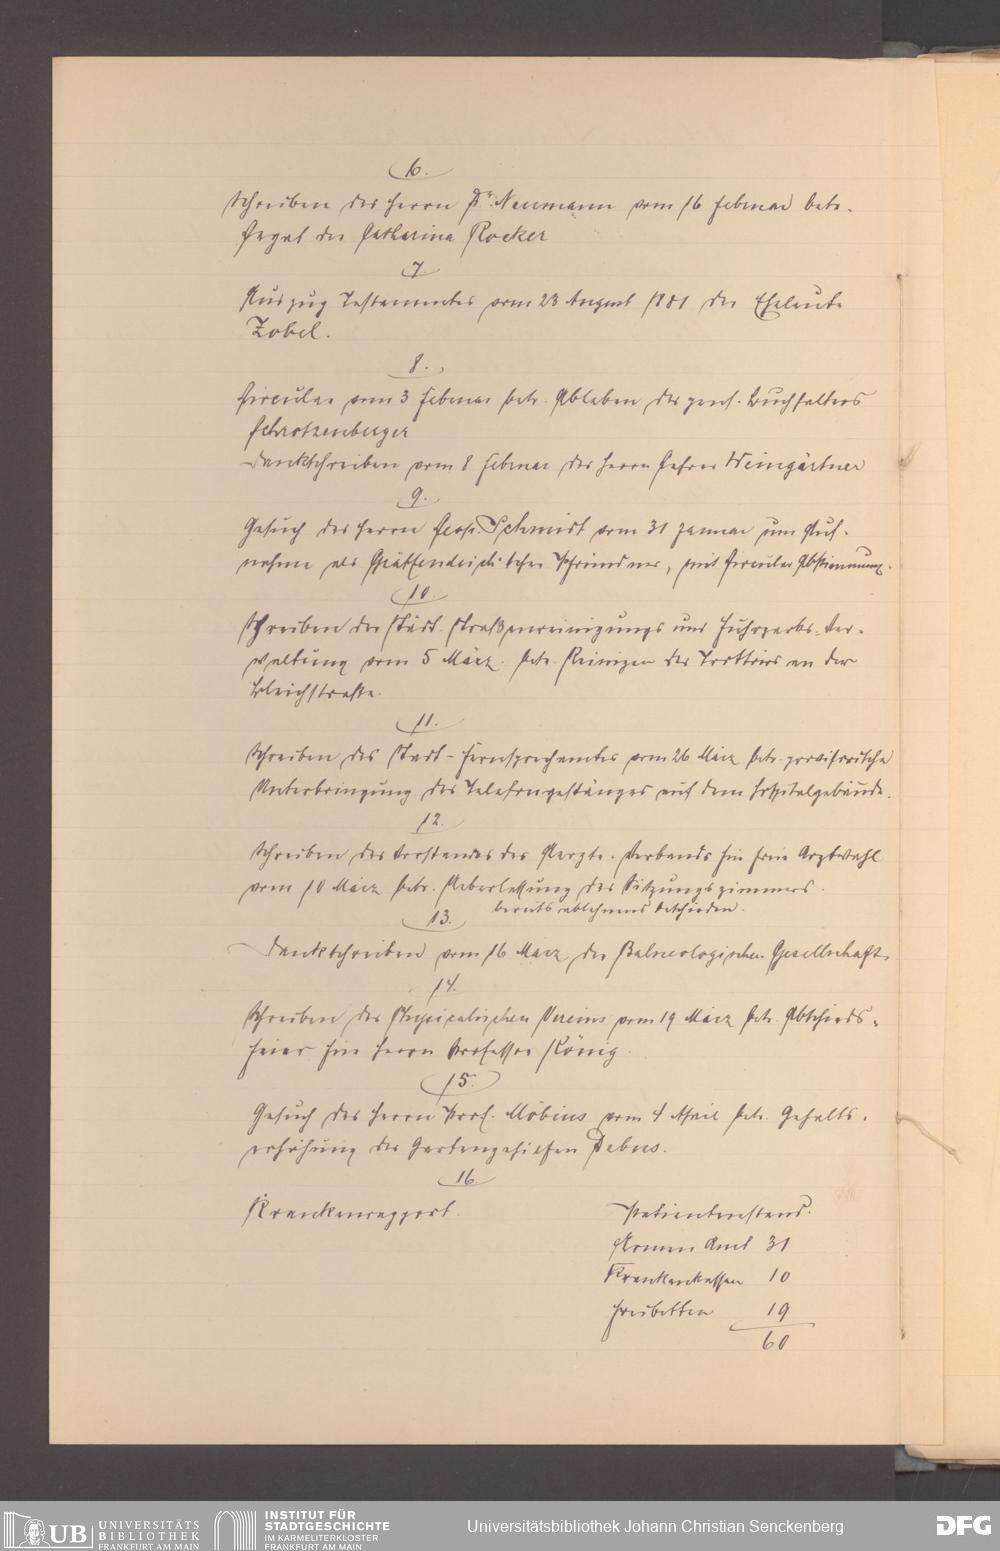 6.
Schreiben des Herrn Dr. Neumann vom 16 Februar betr.
Legat der Catharina Rocker
7
Auszug Testamentes vom 23 August 1881 der Eheleute
Zobel.
8.
Circular vom 3 Februar betr. Ableben des pens. Buchhalters
Schrotzenberger
Dankschreiben vom 8 Februar des Herrn Weingärtner
9.
Gesuch des Herrn Schmidt vom 31 Januar um Auf-
nahme als Pfründner, mit Circular Abstimmung.
10.
Schreiben der städt. Straßenreinigungs und Fuhrparks-Ver-
waltung vom 5 März betr. Reinigen des Trottoirs an der
Bleichstraße.
11.
Schreiben des Stadt-Fernsprechamtes vom 26 März betr. provisorische
Unterbringung des Telefongestänges auf dem Hospitalgebäude.
12.
Schreiben des Vorstandes des Aerzte-Verbands für freie Arztwahl
vom 10 März betr. Ueberlassung des Sitzungszimmers.
bereits ablehnend beschieden.
13.
Dankschreiben vom 16 März der Balneologischen Gesellschaft
14.
Schreiben des Physicalischen Vereins vom 19 März betr. Abschieds-
feier für Herrn Professor König.
15.
Gesuch des Herrn Prof. Möbius vom 4 April betr. Gehalts-
erhöhung des Gartengehilfen Debus.
16.
Krankenrapport. Patientenstand.
Armen Amt 31
Krankenkassen 10
Freibetten 19
60
UB UNIVERSITÄTS
BIBLIOTHEK
FRANKFURT AM MAIN
INSTITUT FÜR
STADTGESCHICHTE
IM KARMELITERKLOSTER
FRANKFURT AM MAIN
Universitätsbibliothek Johann Christian Senckenberg
DFG